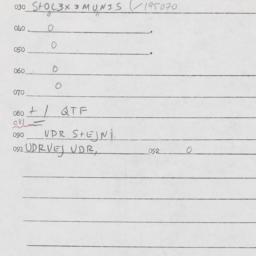 030 StOL3X3MUNIS (/195070
040 0
050 0
060 0
070 0
080 + / QTF
081
090 UDR StEJNI
092 UDRVEJ UDR, 052 0